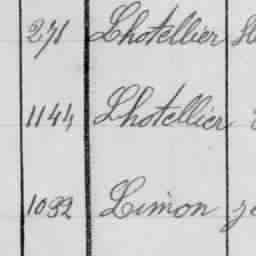 271 Lhotellier
1144 Lhotellier
1032 Limon